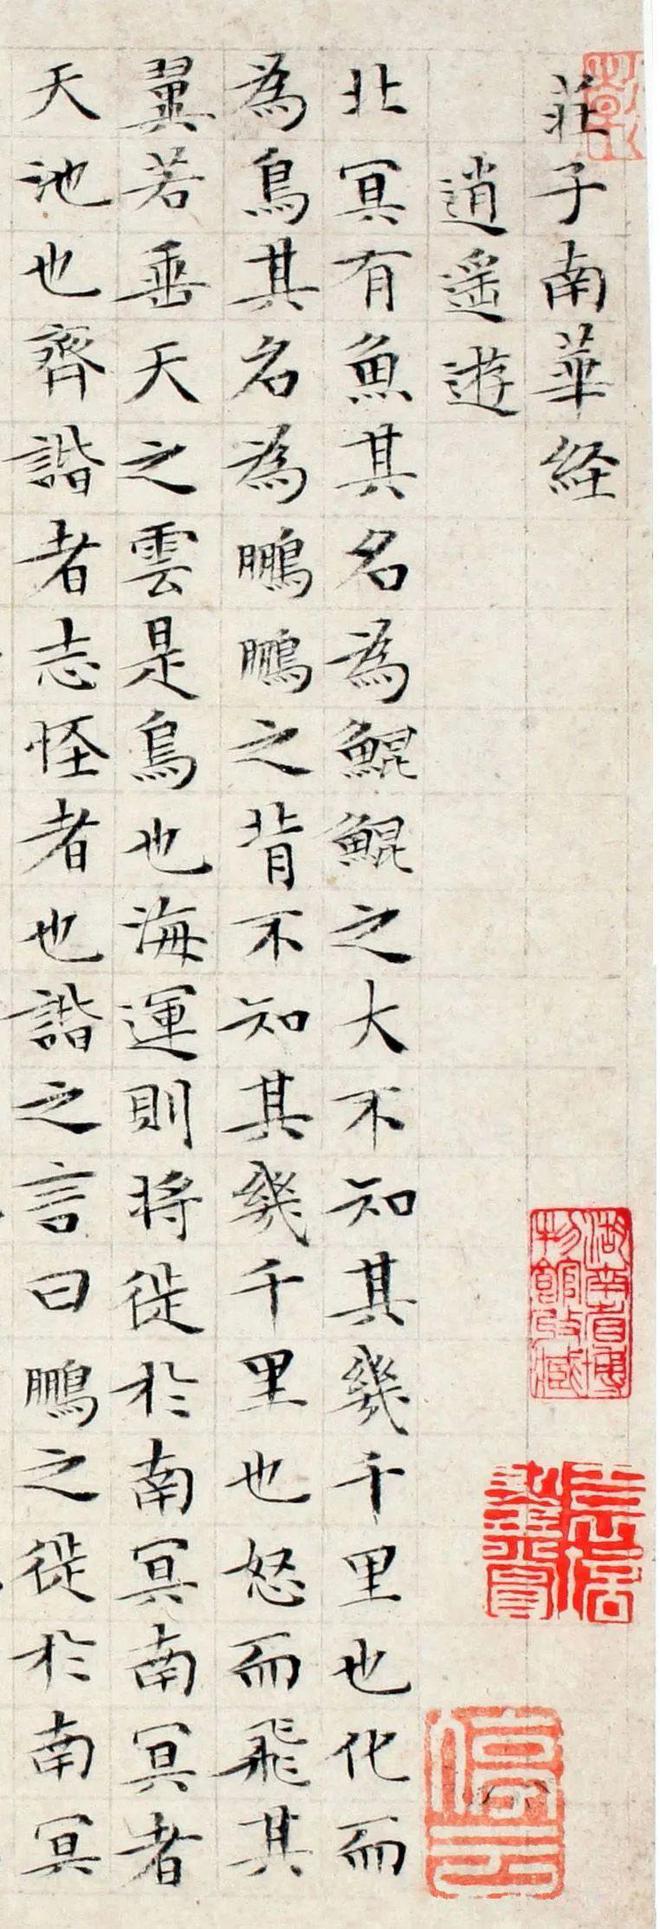 莊子南華経
逍遥遊
北冥有魚其名為鯤鯤之大不知其幾千里也化而
為鳥其名為鵬鵬之背不知其幾千里也怒而飛其
翼若垂天之雲是鳥也海運則将徙於南冥南冥者
天池也齊諧者志怪者也諧之言曰鵬之徙於南冥
湖南省博
物館收藏
停云